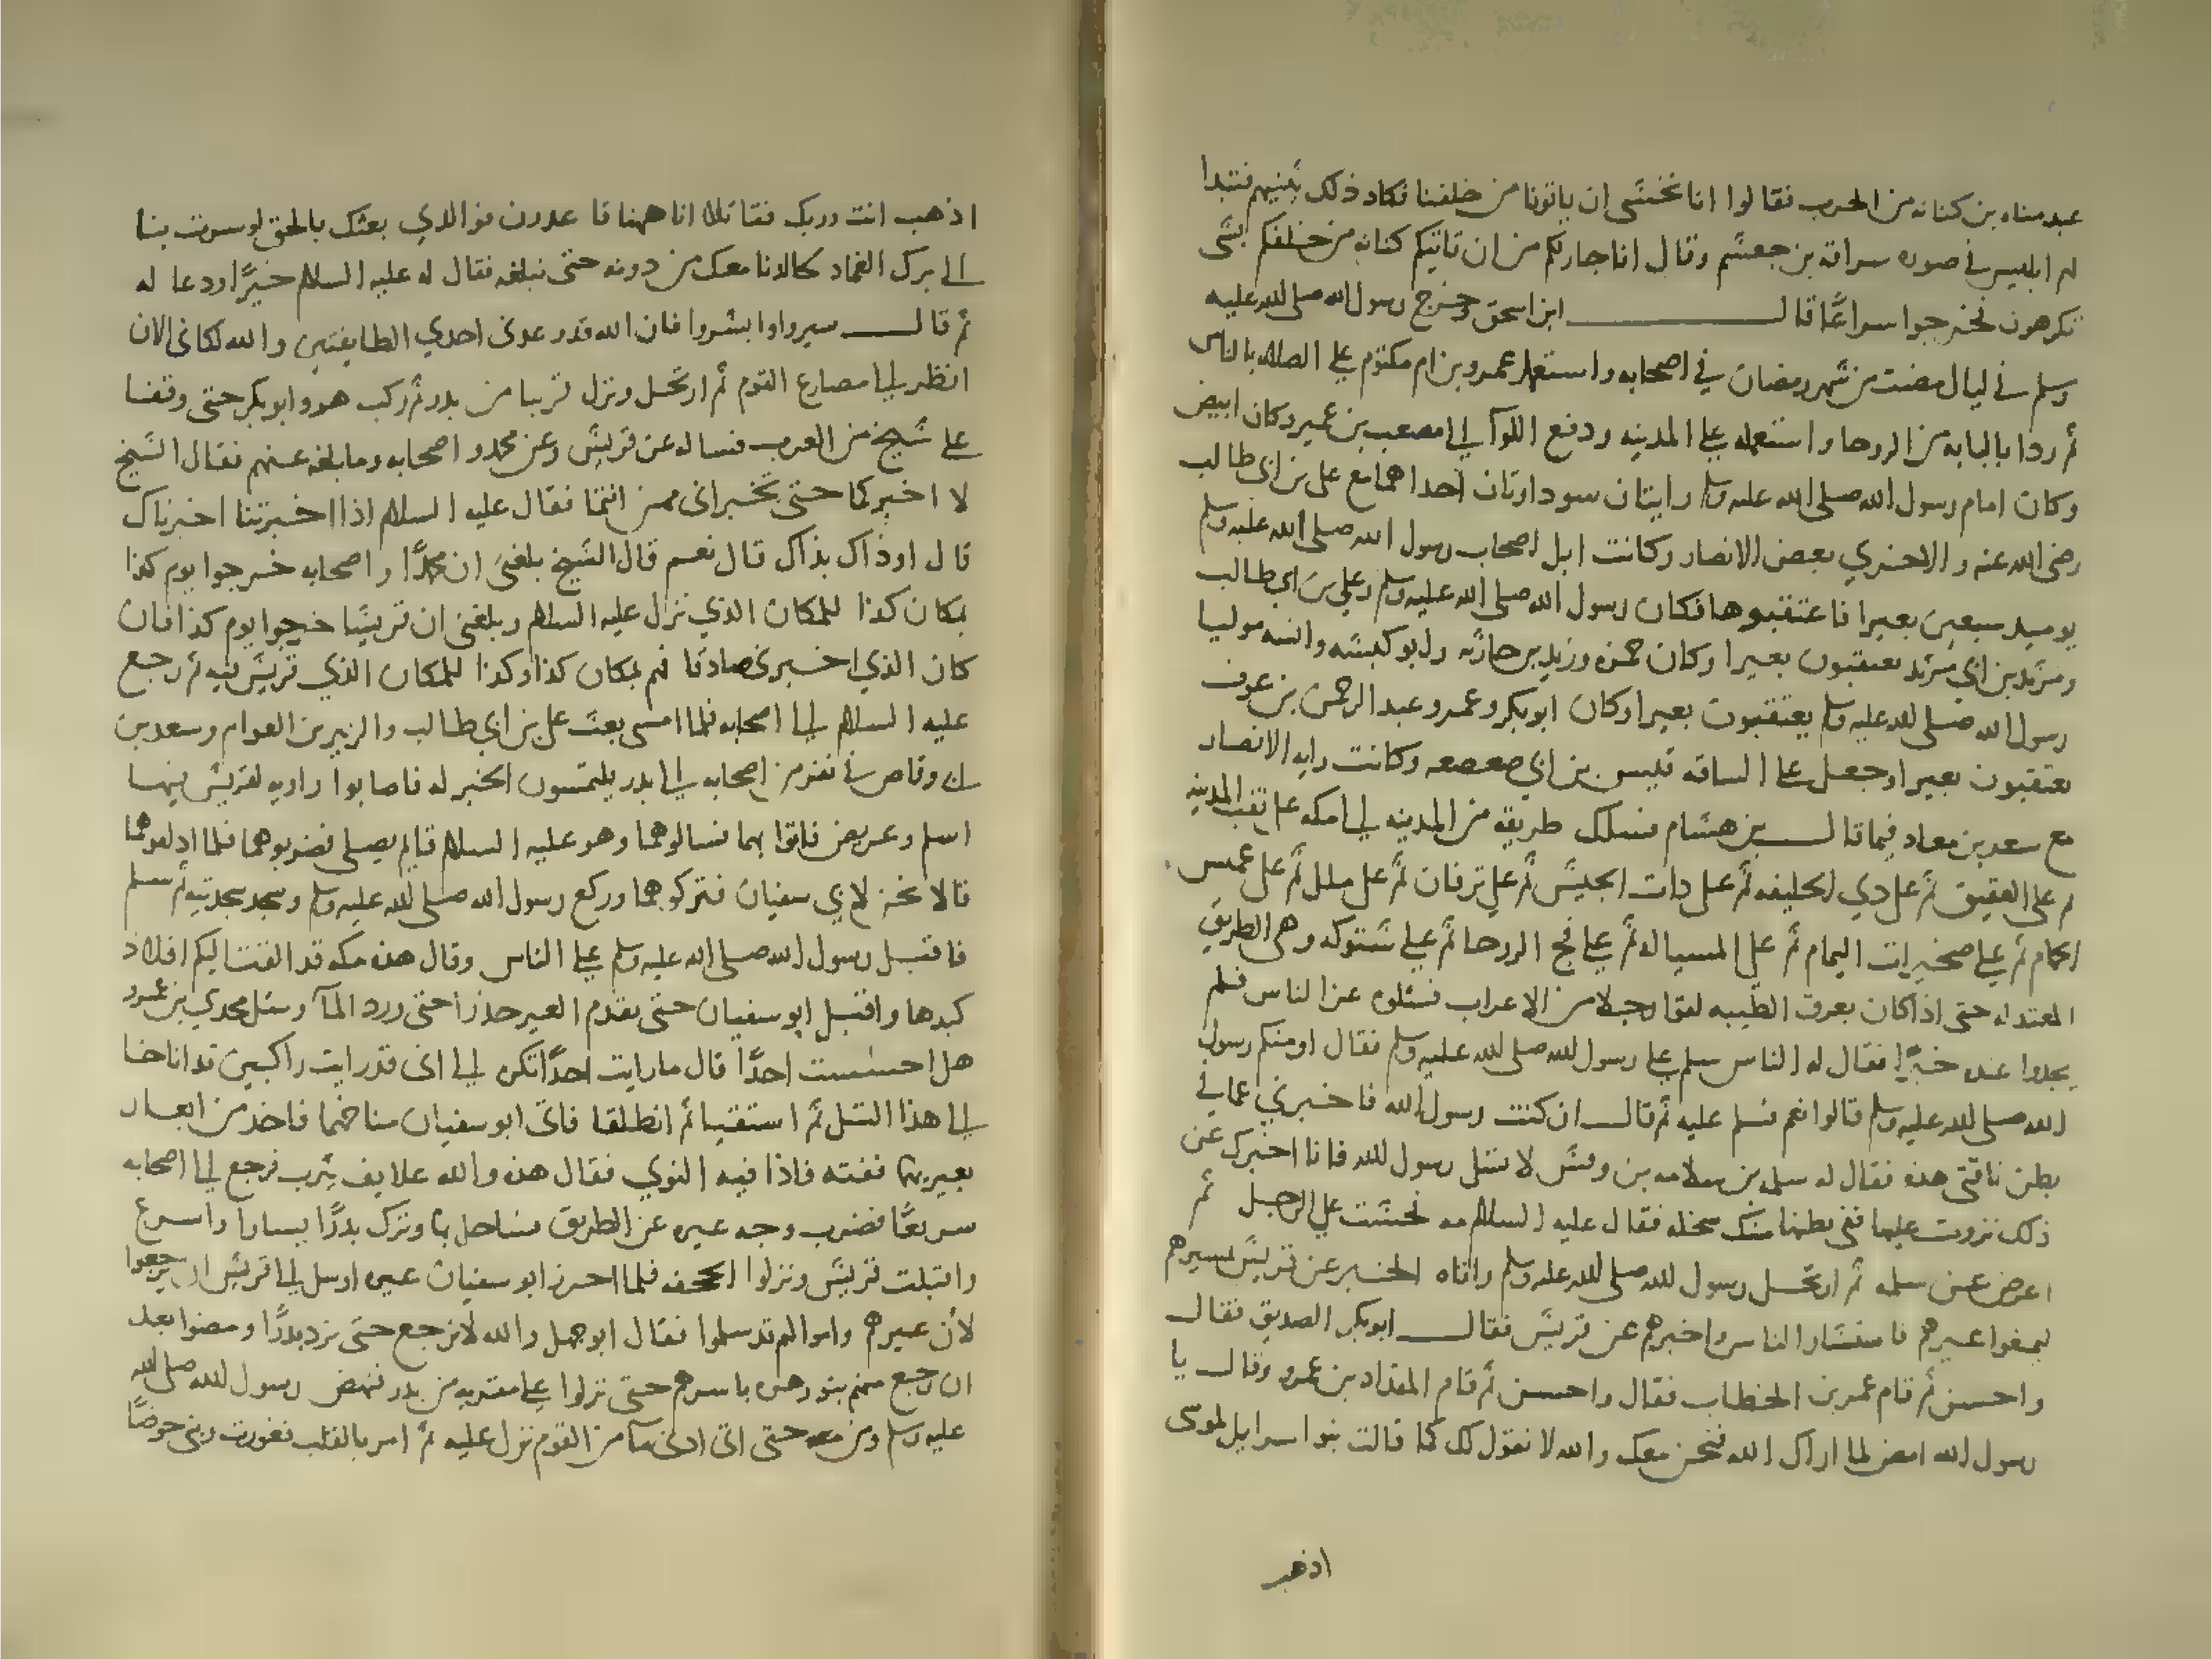 عبد مناه بن كنانه من الحرب فقالوا انا نخشى ان ياتونا من خلفنا فكاد ذلك يثنيهم فتبدا
لهم ابليس في صوره سراقه بن جعشم وقال انا جار لكم من ان تاتيكم كنانه من خلفكم بشي
تكرهون فخرجوا سراعًا قال ابن اسحق وخرج رسول الله صلى الله عليه
وسلم في ليال مضت من شهر رمضان في اصحابه واستعمل عمرو بن ام مكتوم على الصلاه بالناس
ثم ردا بالبابه من الروحا واستعمله على المدينه ودفع اللوآ الى مصعب بن عمير وكان ابيض
وكان امام رسول الله صلى الله عليه وسلم رايتان سوداوتان احداهما مع على بن ابى طالب
رضى الله عنه والاخري بعض الانصار وكانت ابل اصحاب رسول الله صلى الله عليه وسلم
يوميد سبعين بعيرا فاعتقبوها فكان رسول الله صلى الله عليه وسلم وعلي بن ابى طالب
ومرثد بن ابى مرثد يعتقبون بعيرا وكان حمزه وزيد بن حارثه وابو كبشه وانسه موليا
رسول الله صلى الله عليه وسلم يعتقبون بعيرا وكان ابو بكر وعمر وعبد الرحمن بن عوف
يعتقبون بعيرا وجعل على الساقه قيس بن ابي صعصعه وكانت رايه الانصار
مع سعد بن معاد فيما قال بن هشام فسلك طريقه من المدينه الى مكه على نقب المدينه
ثم على العقيق ثم على دي الحليفه ثم على دات الجيش ثم على تربان ثم على ملل ثم على عميس
الحمام ثم على صخيرات اليمام ثم على السياله ثم على فج الروحا ثم على شنوكه وهى الطريق
المعتدله حتى اذا كان بعرق الظبيه لقوا رجلا من الاعراب فسئلوه عن الناس فلم
يجدوا عنده خبرًا فقال له الناس سلم على رسول الله صلى الله عليه وسلم فقال اوفيكم رسول
الله صلى الله عليه وسلم قالوا نعم فسلم عليه ثم قال ان كنت رسول الله فاخبرني عما في
بطن ناقتى هذه فقال له سلمه بن سلامه بن وقش لا تسئل رسول الله فانا اخبرك عن
ذلك نزوت عليها ففى بطنها منك سخله فقال عليه السلام مه فحشت على الرجل ثم
اعرض عن سلمه ثم ارتحل رسول الله صلى الله عليه وسلم واتاه الخبر عن قريش بمسيرهم
ليمنعوا عيرهم فاستشار الناس واخبرهم عن قريش فقال ابو بكر الصديق فقال
واحسن ثم قام عمر بن الخطاب فقال واحسن ثم قام المقداد بن عمرو وقال يا
رسول الله امض لما اراك الله فنحن معك والله لا نقول لك كما قالت بنو اسرايل لموسى
اذهب
اذهب انت وربك فقاتلا انا ههنا قاعدون فوالدي بعثك بالحق لو سرت بنا
الى برك الغماد لجالدنا معك من دونه حتى نبلغه فقال له عليه السلام خيرًا ودعا له
ثم قال سيروا وابشروا فان الله قد وعدنى احدي الطايفتين والله لكانى الان
انظر الى مصارع القوم ثم ارتحل ونزل قريبا من بدر ثم ركب هو وابو بكر حتى وقفا
على شيخ من العرب فساله عن قريش وعن محمد واصحابه وما بلغه عنهم فقال الشيخ
لا اخبركما حتى تخبرانى ممن انتما فقال عليه السلام اذا اخبرتنا اخبرناك
قال اوذاك بذاك قال نعم قال الشيخ بلغنى ان محمدًا واصحابه خرجوا يوم كذا
بمكان كذا للمكان الذي نزل عليه السلام وبلغنى ان قريشا خرجوا يوم كذا فان
كان الذي اخبرنى صادقا فهم بمكان كذا وكذا للمكان الذي قريش فيه ثم رجع
عليه السلام الى اصحابه فلما امسى بعث على بن ابى طالب والزبير بن العوام وسعد بن
ابى وقاص في نفر من اصحابه الى بدر يلتمسون الخبر له فاصابوا راويه لقريش فيها
اسلم وعريض فاتوا بهما فسالوهما وهو عليه السلام قايم يصلى فضربوهما فلما ادلقوهما
قالا نحن لابي سفيان فتركوهما وركع رسول الله صلى الله عليه وسلم وسجد سجدتيه ثم سلم
فاقبل رسول الله صلى الله عليه وسلم على الناس وقال هذه مكه قد القت اليكم افلاذ
كبدها واقبل ابو سفيان حتى تقدم العير حذرا حتى ورد المآ وسئل مجدي بن عمرو
هل احسست احدًا قال ما رايت احدًا انكره الا انى قد رايت راكبين قد اناخا
الى هذا التل ثم استقيا ثم انطلقا فاتى ابو سفيان مناخهما فاخذ من ابعار
بعيريهما ففته فاذا فيه النوي فقال هذه والله علايف يثرب فرجع الى اصحابه
سريعًا فضرب وجه عيره عن الطريق فساحل بها وترك بدرًا بيسار واسرع
واقبلت قريش ونزلوا الجحفه فلما احرز ابو سفيان عيره ارسل الى قريش ان يرجعوا
لان عيرهم واموالهم قد سلموا فقال ابو جهل والله لا نرجع حتى نرد بدرًا ومضوا بعد
ان رجع منهم بنو زهره باسرهم حتى نزلوا على مقربه من بدر فنهض رسول الله صلى الله
عليه وسلم ومن معه حتى اتى ادنى مآ من القوم نزل عليه ثم امر بالقلب فغورت وبنى حوضًا